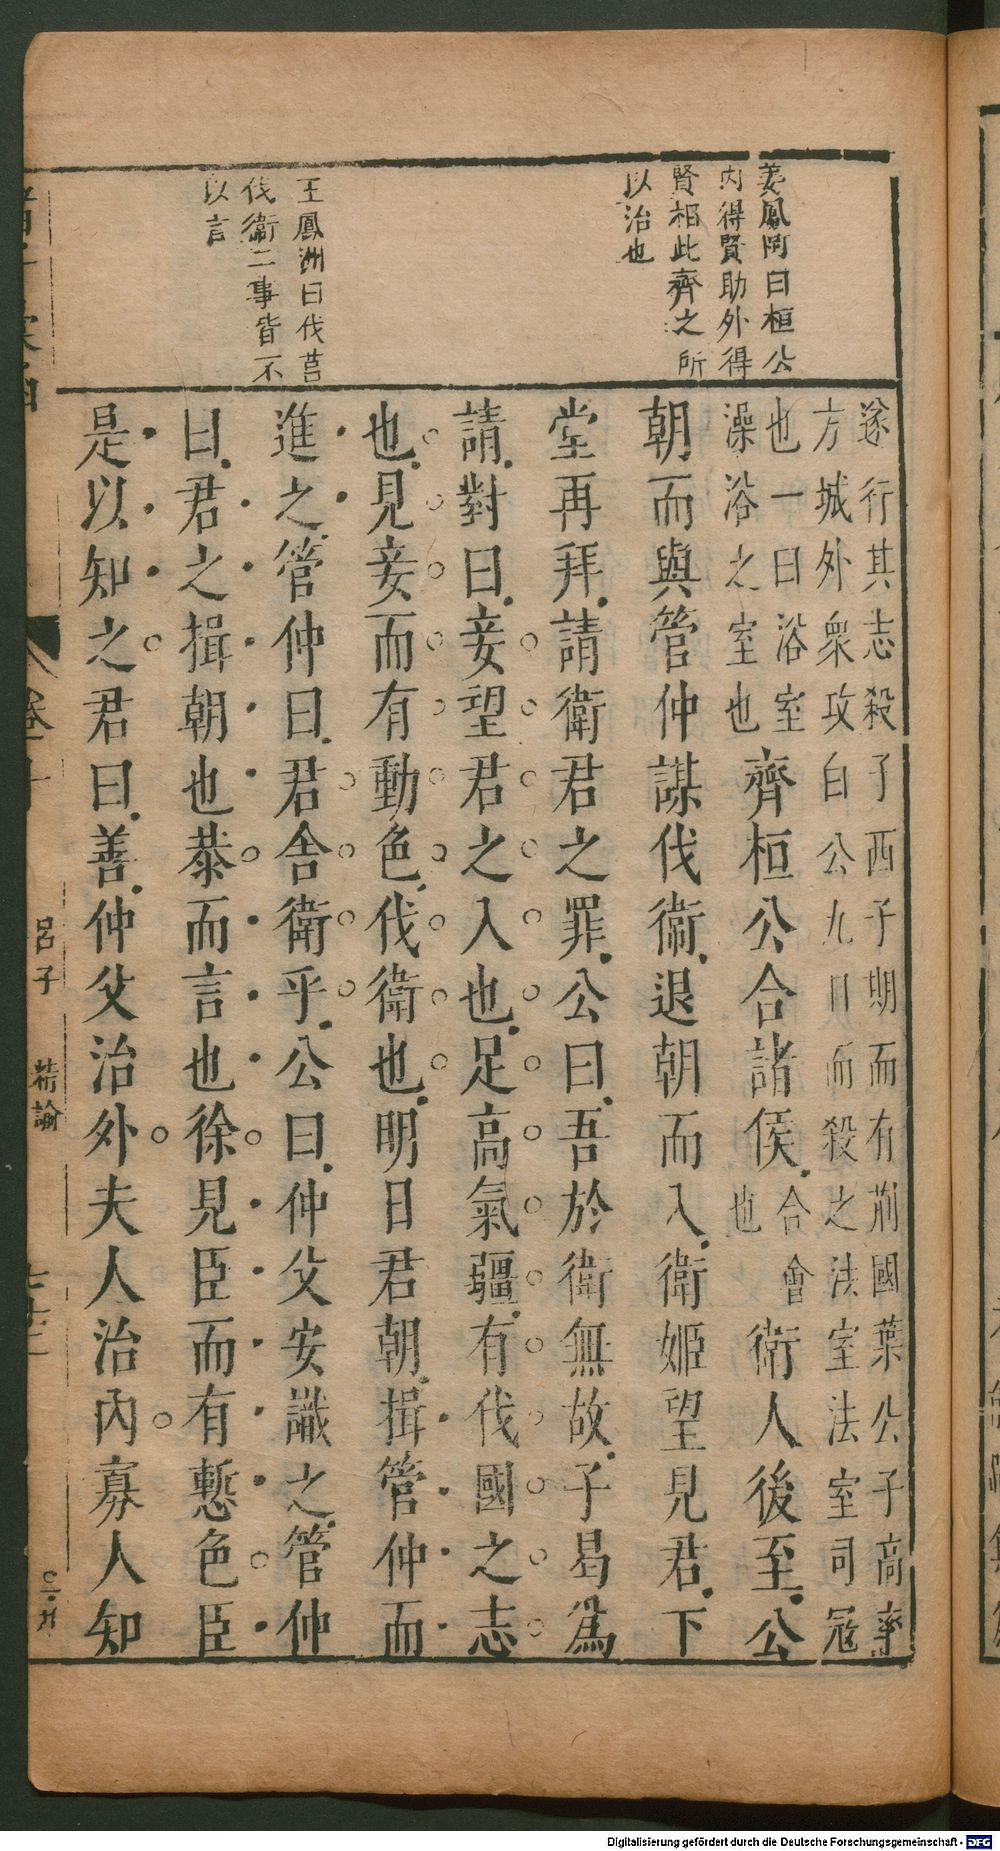 姜鳳阿曰桓公
內得賢助外得
賢相此齊之所
以治也
王鳳洲曰伐莒
伐衛二事皆不
以言
遂行其志殺子西子期而有荊國葉公子高率
方城外衆攻白公九日而殺之法室法室司冦
也一曰浴室
澡浴之室也
齊桓公合諸侯
合會
也
衛人後至公
朝而與管仲謀伐衛退朝而入衛姬望見君下
堂再拜請衛君之罪公曰吾於衛無故子曷爲
請對曰妾望君之入也足高氣疆有伐國之志
也見妾而有動色伐衛也明日君朝揖管仲而
進之管仲曰君舍衛乎公曰仲父安識之管仲
曰君之揖朝也恭而言也徐見臣而有慙色臣
是以知之君曰善仲父治外夫人治內寡人知
卷十
呂子
精諭
Digitalisierung gefördert durch die Deutsche Forschungsgemeinschaft - DFG